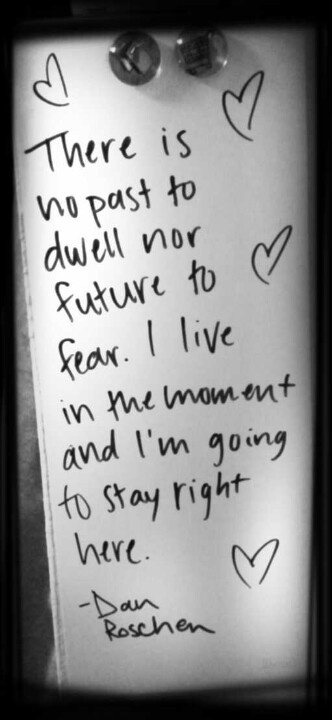 There is
no past to
dwell nor
future to
fear. I live
in the moment
and I'm going
to stay right
here.
-Dan
Roschen